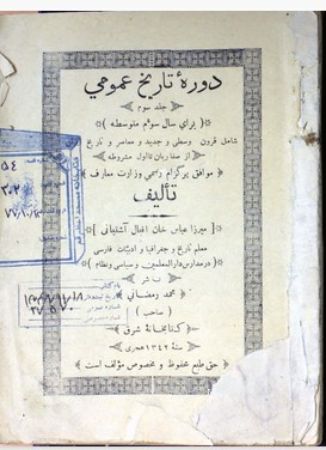 دورهٔ تاریخ عمومي
جلد سوم
( براي سال سوّم متوسطه )
شامل قرون وسطی و جدید و معاصر و تاریخ
از صفاریان تا اول مشروطه
موافق پرگرام رسمی وزارت معارف
تألیف
[ میرزا عباس خان اقبال آشتیانی ]
معلم تاریخ و جغرافیا و ادبیات فارسی
( در مدارس دارالمعلمین و سیاسی و نظام )
ناشر
محمد رمضانی
( صاحب )
کتابخانهٔ شرق
سنهٔ ۱۳۴۲ هجری
حق طبع محفوظ و مخصوص مؤلف است